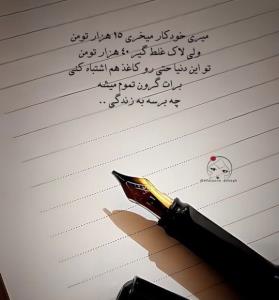 میری خودکار میخری ۱۵ هزار تومن
ولی لاک غلط گیر ۴۰ هزار تومن
تو این دنیا حتی رو کاغذ هم اشتباه کنی
برات گرون تموم میشه
چه برسه به زندگی ..